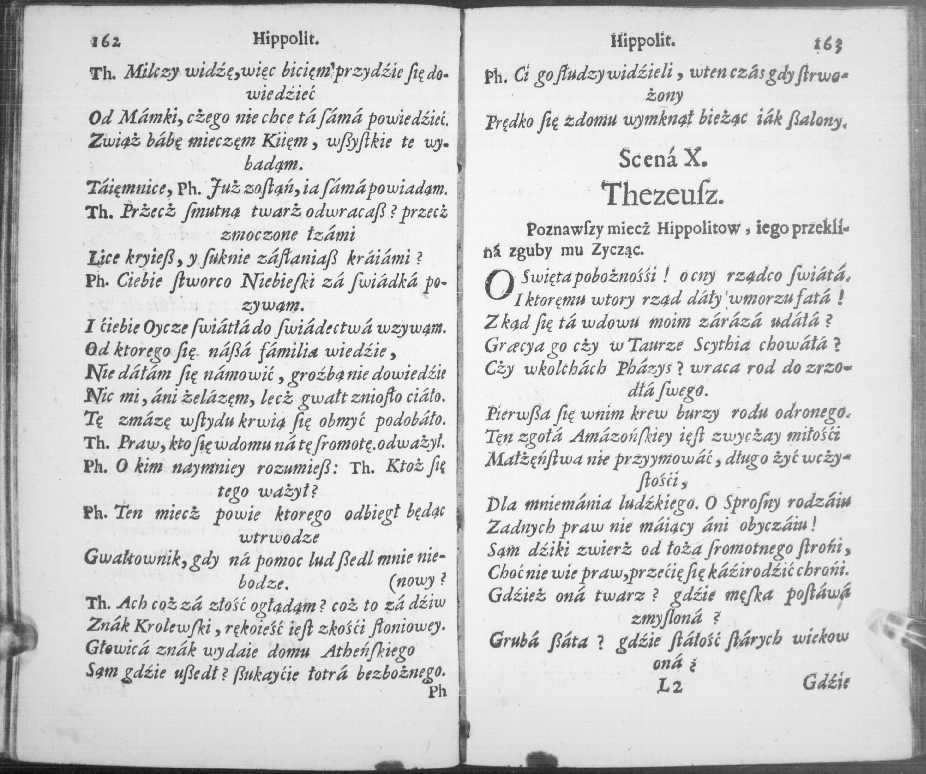 162 Hippolit.
Th. Milczy widzę, więc bicięm przydźie ſię do-
wiedźieć
Od Mámki, cżego nie chce tá ſámá powiedźieć.
Zwiąż bábę mieczęm Kiięm, wſßyſtkie te wy-
badąm.
Táięmnice, Ph. Już zoſtąń, ia ſámá powiadąm.
Th. Przecż ſmutną twarż odwracaß? przecż
zmoczone łzámi
Lice kryieß, y ſuknie záſtaniaß kráiámi?
Ph. Ciebie ſtworco Niebieſki zá ſwiádká po-
zywąm.
I ćiebie Oycze ſwiátłá do ſwiádectwá wzywąm.
Od ktorego ſię náßá fámilia wiedźie,
Nie dáłám ſię námowić, groźbą nie dowiedźie
Nic mi, áni żelázęm, lecż gwałt znioſło ciáło.
Tę zmázę wſtydu krwią ſię obmyć podobáło.
Th. Praw, kto ſię w domu ná tę ſromotę odważył.
Ph. O kim naymniey rozumieß: Th. Ktoż ſię
tego ważył?
Ph. Ten miecż powie ktorego odbiegł będąc
wtrwodze
Gwałtownik, gdy ná pomoc lud ßedl mnie nie-
bodze. (nowy?
Th. Ach coż zá złość oglądąm? coż to zá dźiw
Znák Krolewſki, rękoieść ieſt zkośći ſłoniowey.
Głowicá znák wydaie domu Atheńſkiego
Sąm gdźie ußedł? ßukayćie łotrá bezbożnego.
Ph
Hippolit. 163
Ph. Ci go ſłudzy widźieli, wten czás gdy ſtrwo-
żony
Prędko ſię zdomu wymknął bieżąc iák ßalony.
Scená X.
Thezeuſz.
Poznawſzy miecż Hippolitow, iego przekli-
ná zguby mu Zycząc.
O Swięta pobożnośśi! o cny rządco ſwiátá,
I ktoręmu wtory rząd dáły wmorzu fatá!
Zkąd ſię tá wdowu moim zárázá udáłá?
Græcya go cży w Taurze Scythia chowáłá?
Cży wkolchách Pházys? wraca rod do zrzo-
dłá ſwego.
Pierwßa ſię wnim krew burzy rodu odronego.
Tęn zgołá Amázońſkiey ięſt zwycżay miłośći
Małżęńſtwa nie przyymowáć, długo żyć wcży-
ſtośći,
Dla mniemánia ludźkiego. O Sproſny rodzáiu
Zadnych praw nie máiący áni obyczáiu!
Sąm dźiki zwierż od łoża ſromotnego ſtrońi,
Choć nie wie praw, przećię ſię káźirodźić chrońi.
Gdźież oná twarz? gdźie męſka poſtáwá
zmyſloná?
Grubá ßáta? gdźie ſtáłość ſtárych wiekow
oná?
L2 Gdźie